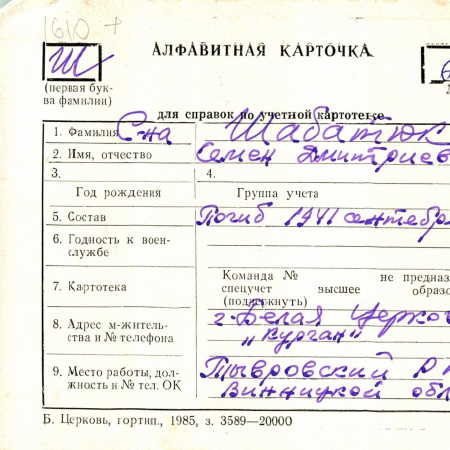 1610 +
Ш
АЛФАВИТНАЯ КАРТОЧКА
(первая бук-
ва фамилии)
для справок по учетной картотеке
1. Фамилия С-на Шабатюк
2. Имя, отчество Семен Дмитриев
3. 4.
Год рождения Группа учета
5. Состав Погиб 1941 сентябр
6. Годность к воен-
службе
Команда № не предназ
7. Картотека спецучет высшее образо
(подчеркнуть)
8. Адрес м-житель-
ства и № телефона
г. Белая Церков
„Курган"
9. Место работы, дол-
жность и № тел. ОК
Тывровский р
Винницкой обл
Б. Церковь, гортип., 1985, з. 3589—20000